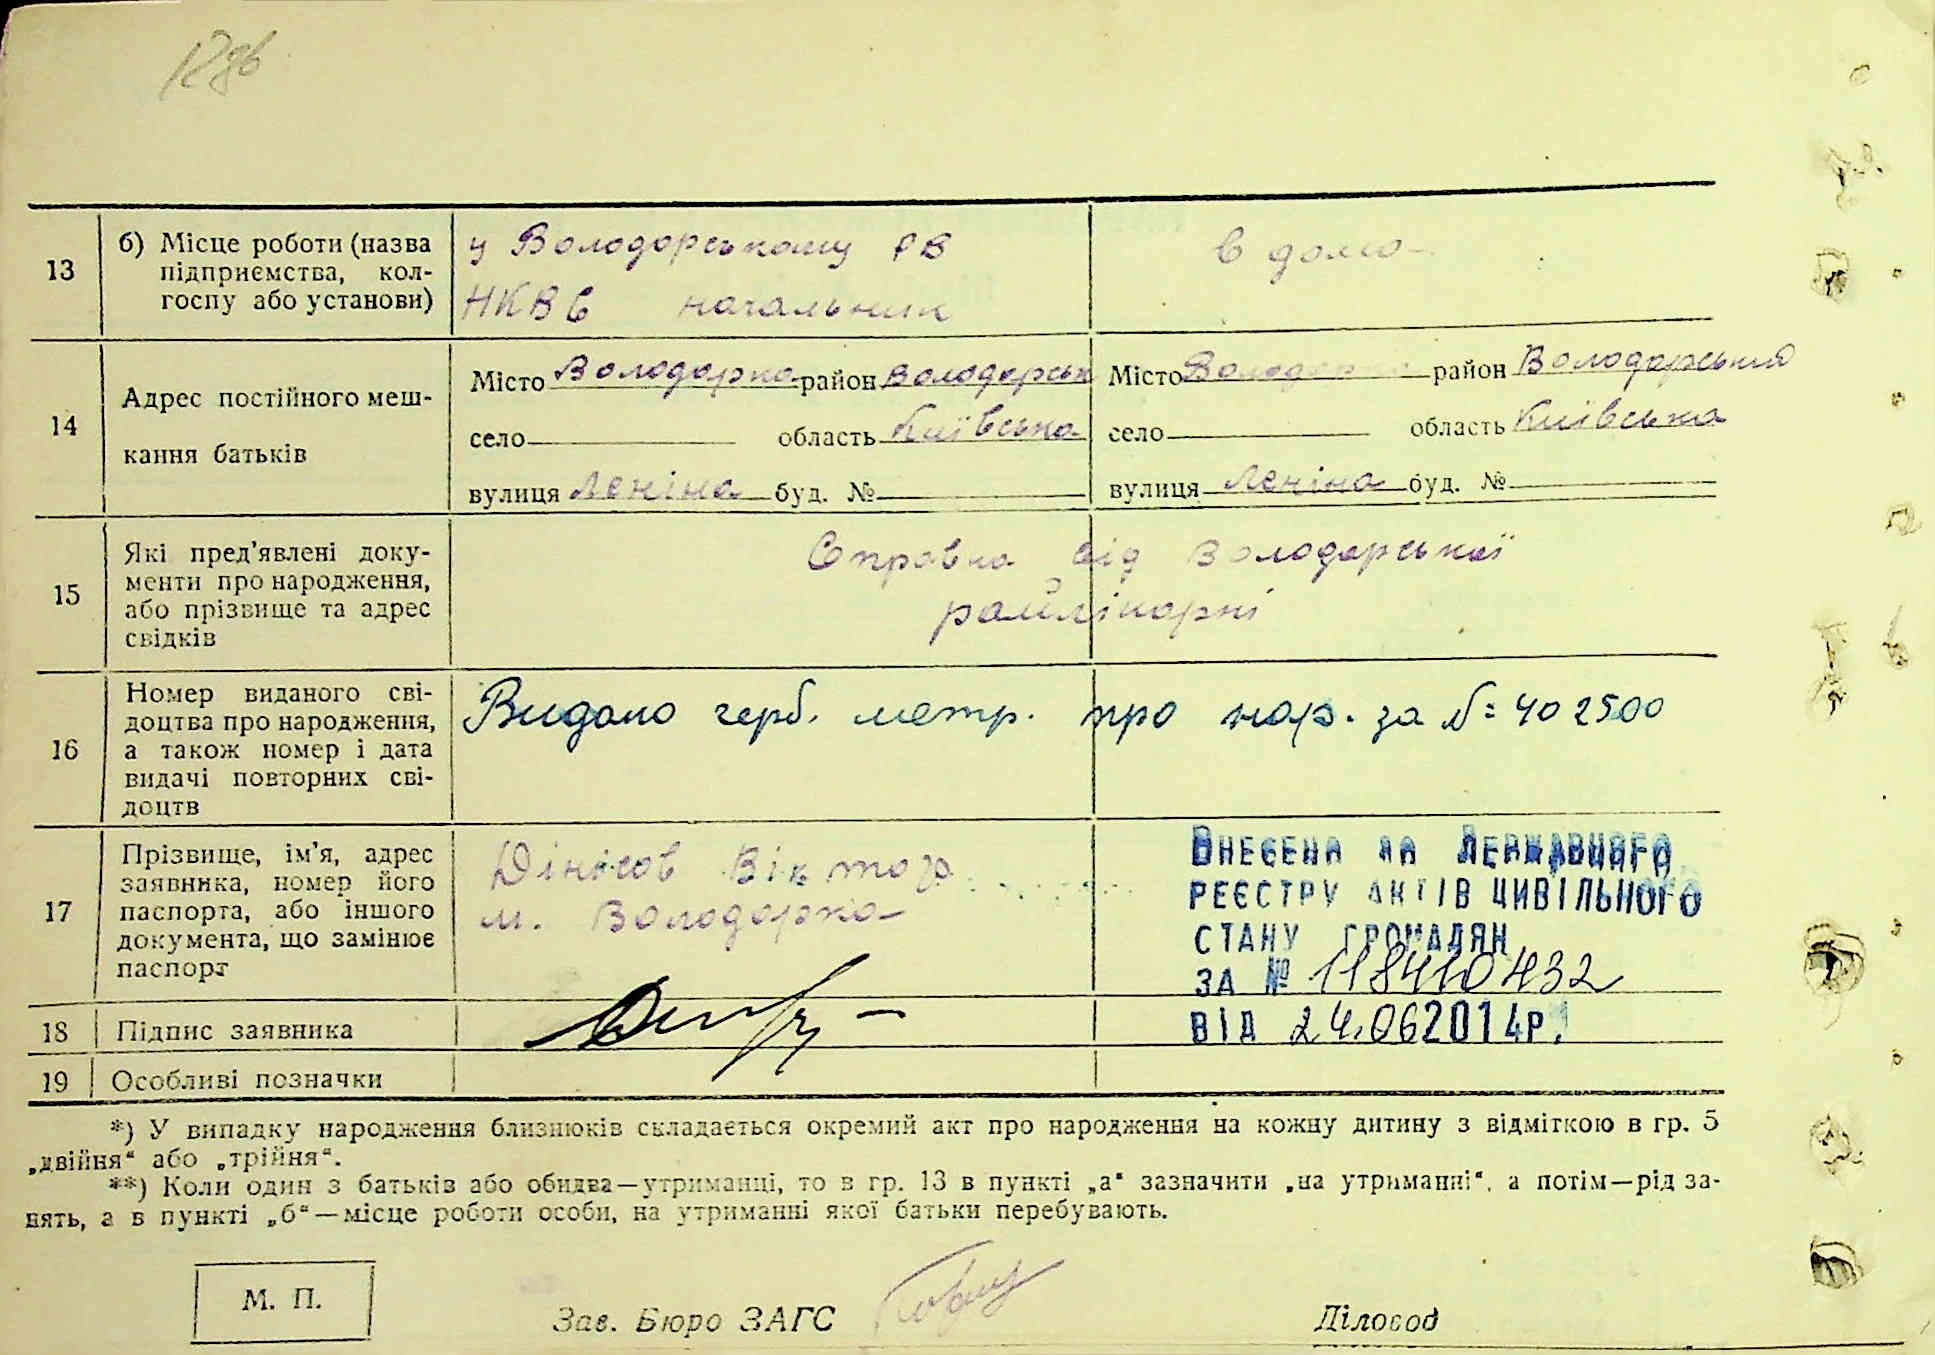 13 б) Місце роботи (назва підприємства, кол-
госпу або установи)
у Володорському РВ
НКВС начальник
в домо-
14 Адрес постійного меш-
кання батьків
Місто Володорка район Володорськ
село область Київська
вулиця Леніна буд. №
Місто Володорка район Володорський
село область Київська
вулиця Леніна буд. №
15 Які пред’явлені доку-
менти про народження,
або прізвище та адрес
свідків
Справка від Володорської
райлікарні
16 Номер виданого сві-
доцтва про народження,
а також номер і дата
видачі повторних сві-
доцтв
Видано герб. метр. про нар. за № 402500
17 Прізвище, ім’я, адрес
заявника, номер його
паспорта, або іншого
документа, що замінює
паспорт
Дінісов Віктор
м. Володорка
ВНЕСЕНА ДО ДЕРЖАВНОГО
РЕЄСТРУ АКТІВ ЦИВІЛЬНОГО
СТАНУ ГРОМАДЯН
ЗА № 118410432
ВІД 24.06 2014р.
18 Підпис заявника
19 Особливі позначки
*) У випадку народження близнюків складається окремий акт про народження на кожну дитину з відміткою в гр. 5
„двійня“ або „трійня“.
**) Коли один з батьків або обидва—утриманці, то в гр. 13 в пункті „а“ зазначити „на утриманні“, а потім—рід за-
нять, а в пункті „б“—місце роботи особи, на утриманні якої батьки перебувають.
М. П.
Зав. Бюро ЗАГС
Діловод